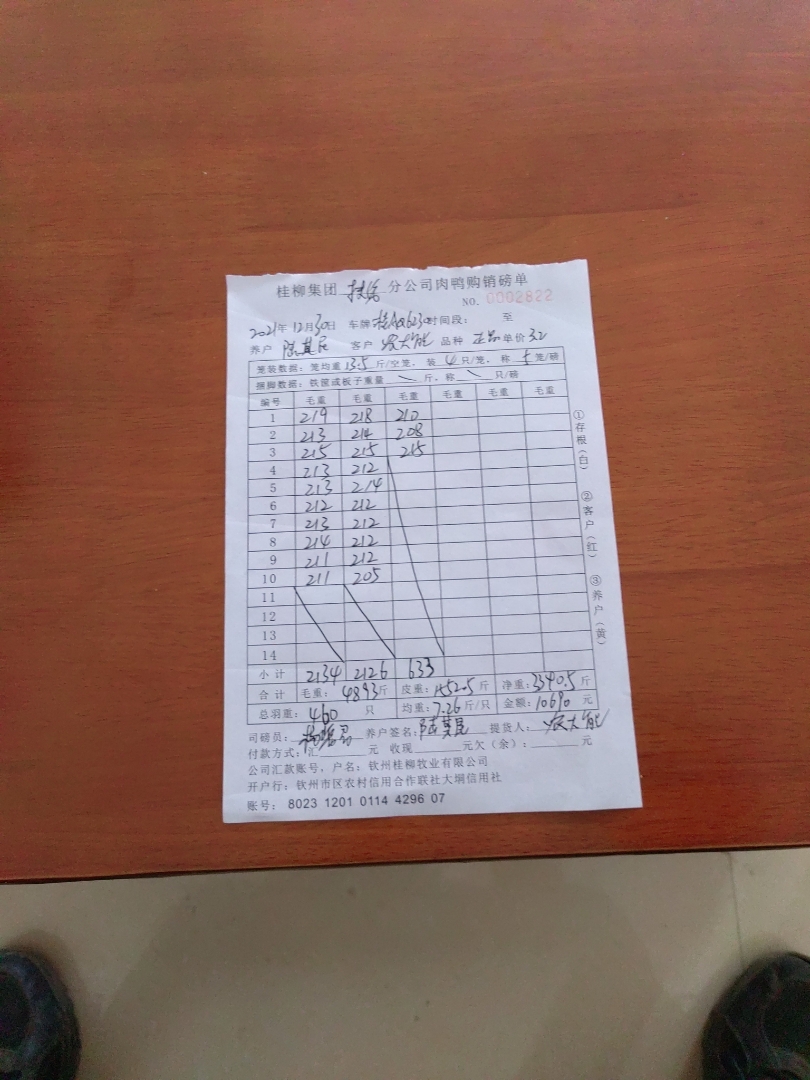 桂柳集团 扶绥 分公司肉鸭购销磅单
NO. 0002822
2021年12月30日 车牌 桂AQ6230 时间段: 至
养户 陆其民 客户 农大能 品种 正品 单价 3.2
笼装数据: 笼均重 13.5 斤/空笼, 装 4 只/笼, 称 5 笼/磅
捆脚数据: 铁筐或板子重量 斤, 称 只/磅
编号 毛重 毛重 毛重 毛重 毛重 毛重
1 219 218 210
2 213 214 208
3 215 215 215
4 213 212
5 213 214
6 212 212
7 213 212
8 214 212
9 211 212
10 211 205
11
12
13
14
小计 2134 2126 633
合计 毛重: 4893斤 皮重: 1552.5 斤 净重: 3340.5 斤
总羽重: 460 只 均重: 7.26 斤/只 金额: 10690 元
司磅员: 养户签名: 陆其民 提货人: 农大能
付款方式: 汇 元 收现 元欠(余): 元
公司汇款账号, 户名: 钦州桂柳牧业有限公司
开户行: 钦州市区农村信用合作联社大垌信用社
账号: 8023 1201 0114 4296 07
①存根(白) ②客户(红) ③养户(黄)